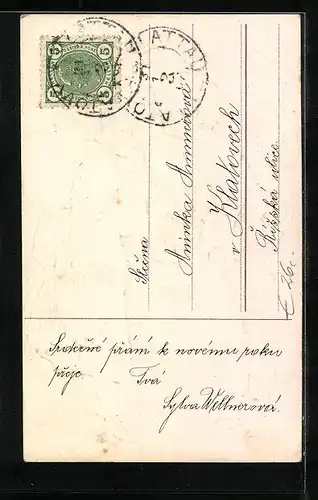 5 5
KLATTAU
Slečna
Aninka
v Klatovech
Pražská ulice
26c.
Srdečné přání k novému roku
přeje Tvá
Sylva Wellnerová.